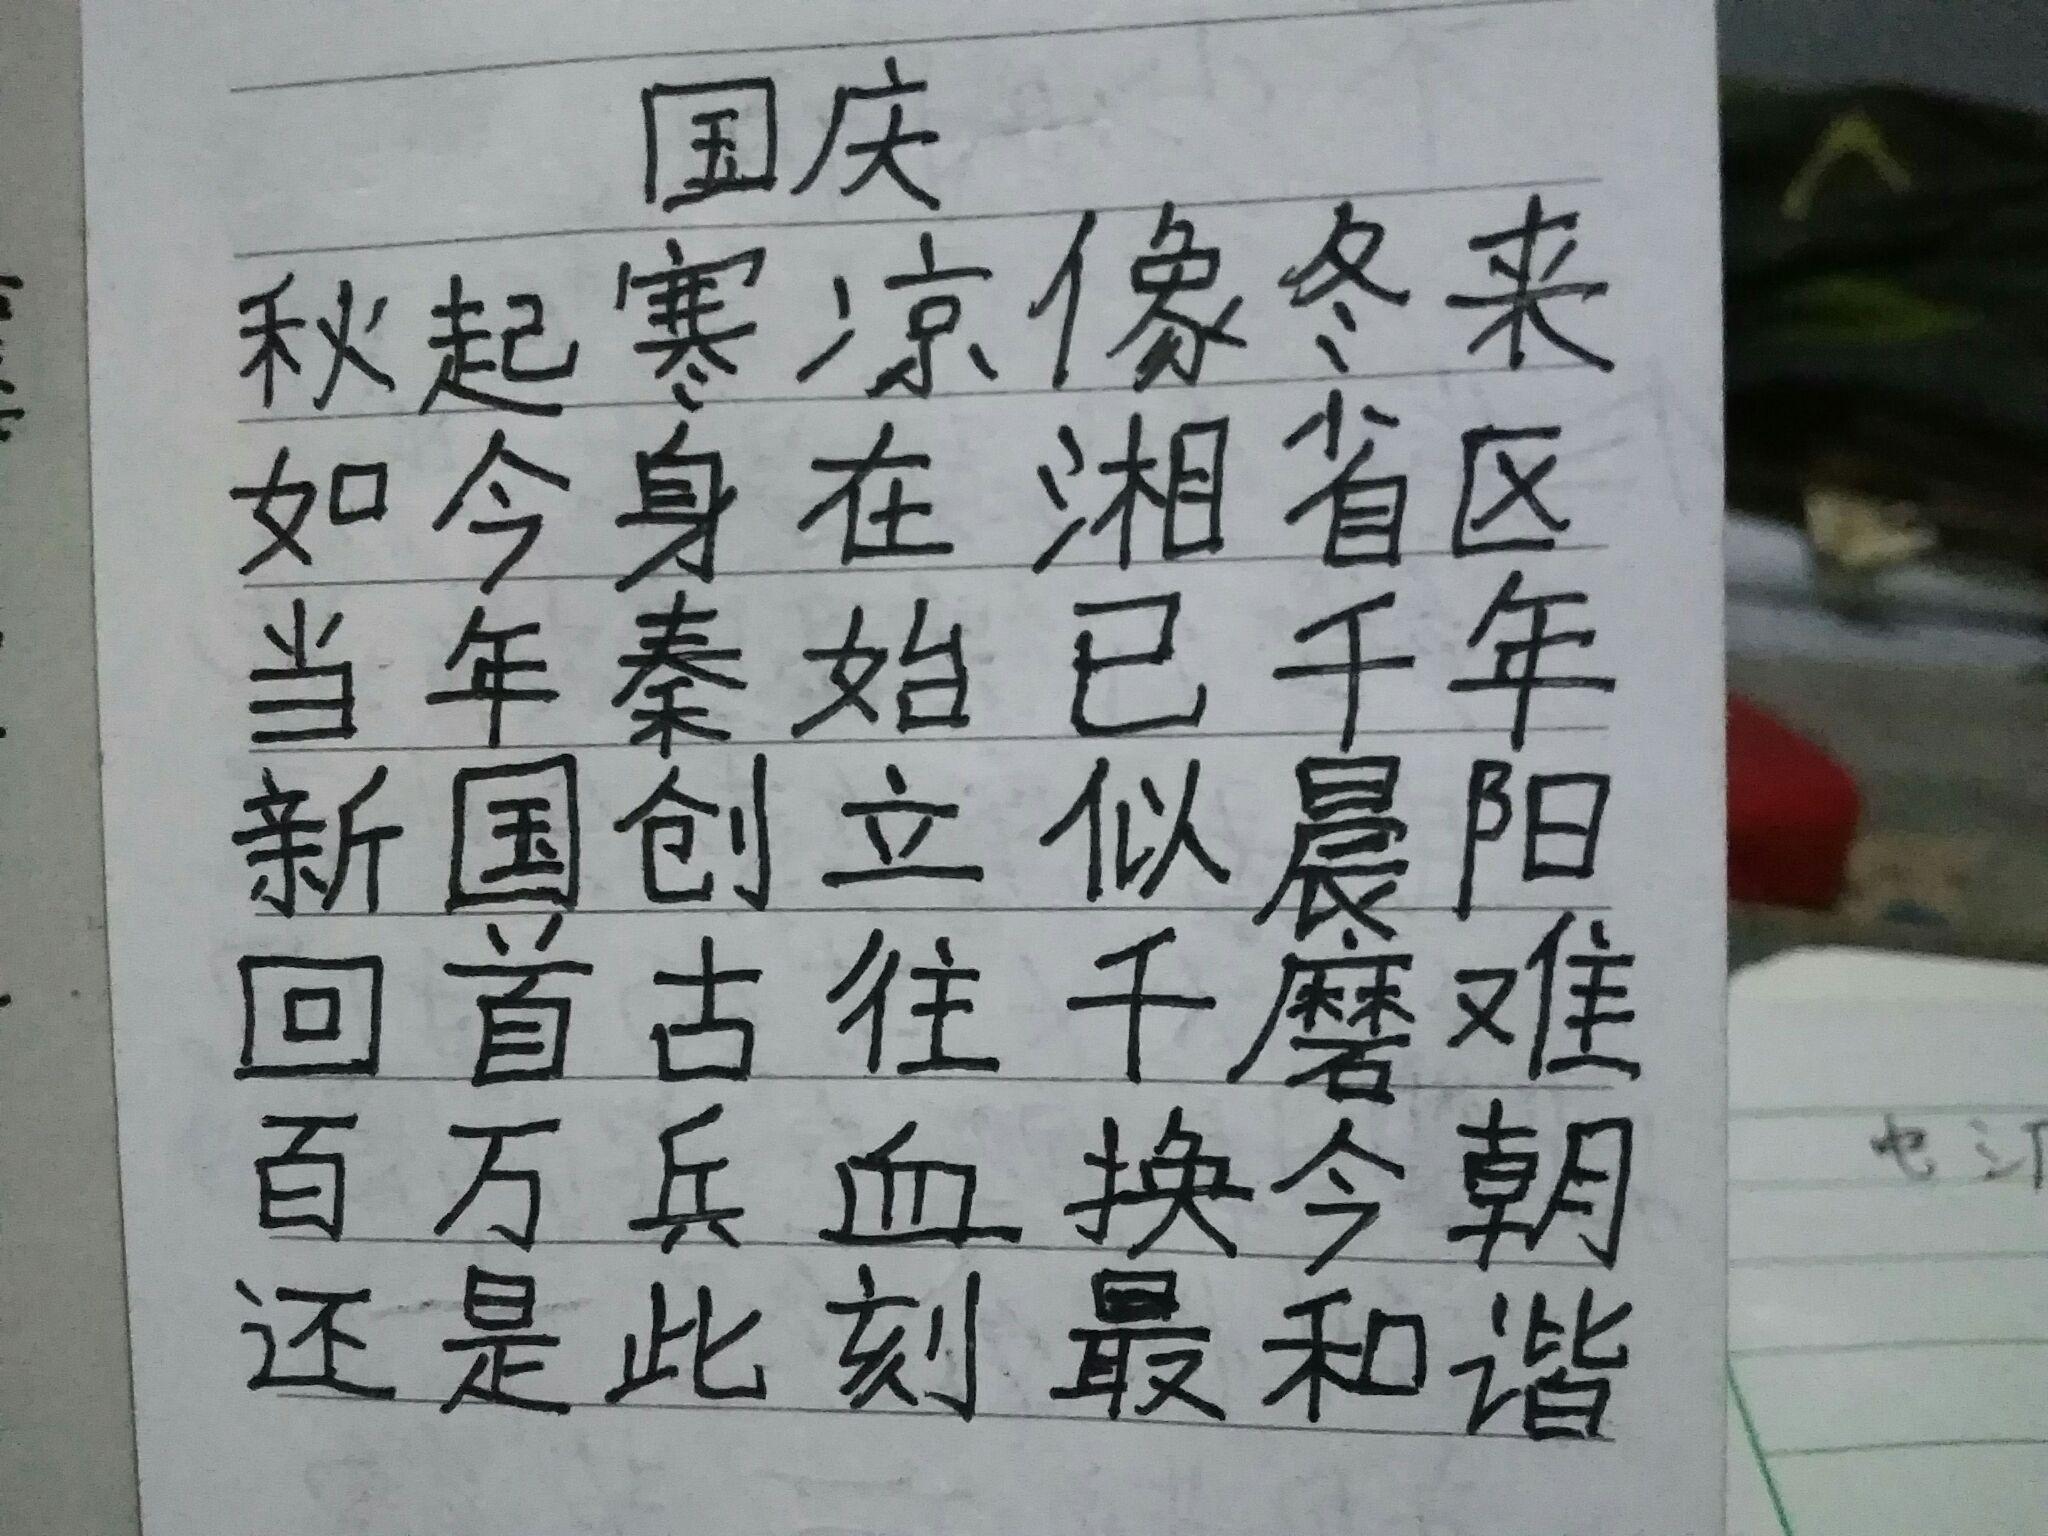 国庆
秋起寒凉像冬来
如今身在湘省区
当年秦始已千年
新国创立似晨阳
回首古往千磨难
百万兵血换今朝
还是此刻最和谐